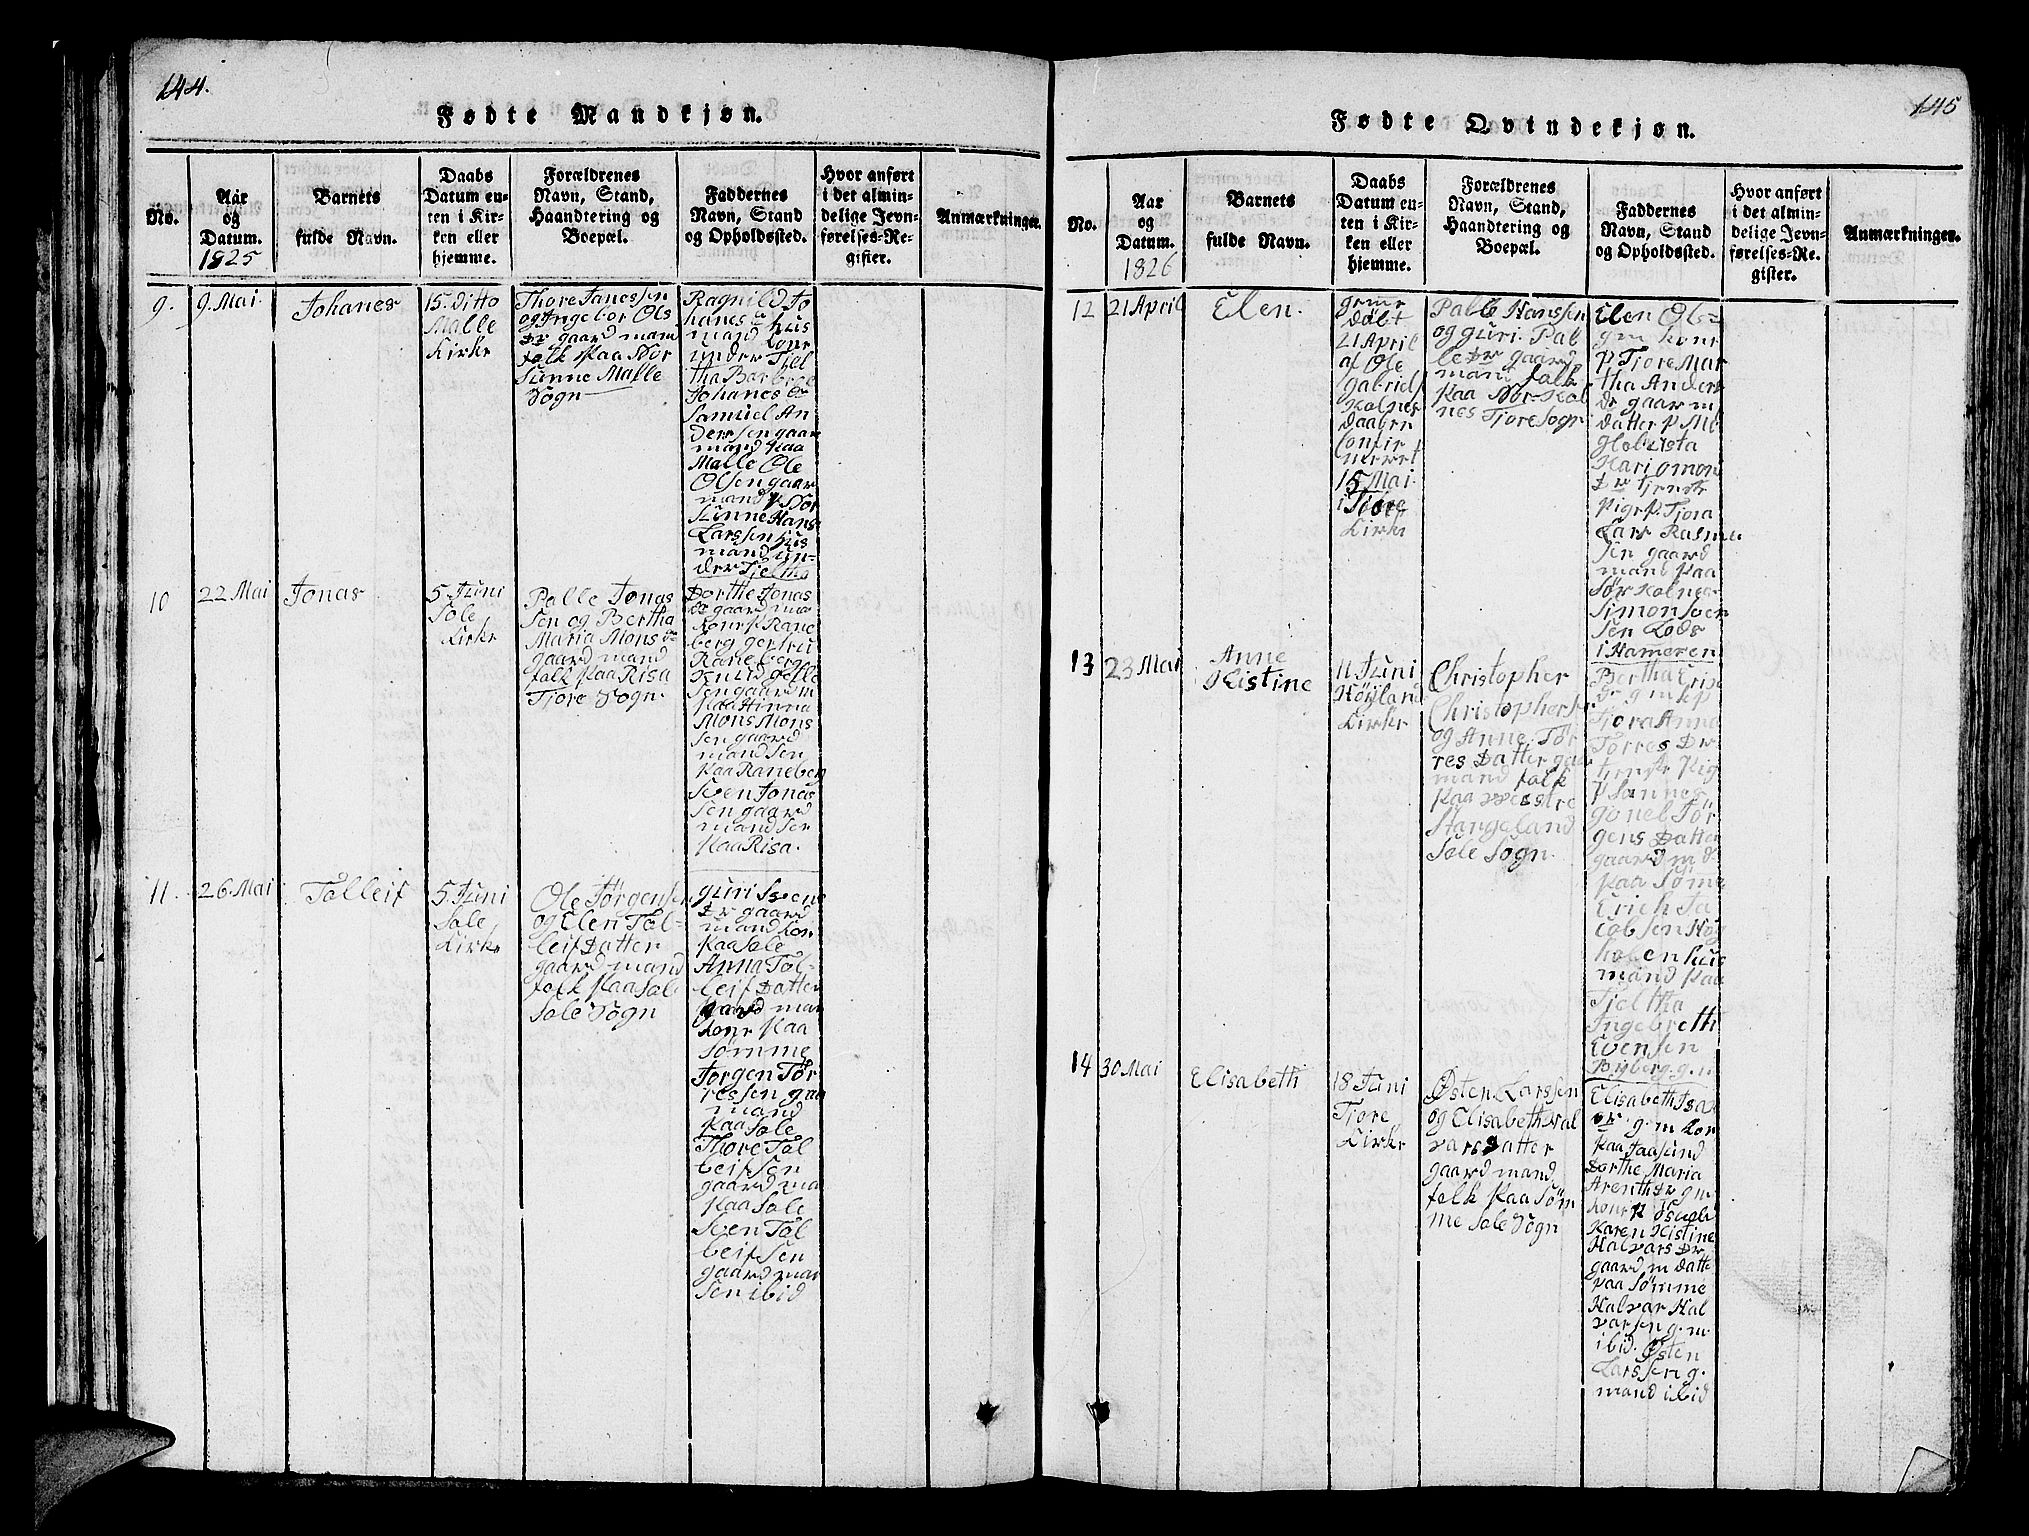 144.
Fødte Mandkjøn.
No.
Aar
og
Datum.
1825
Barnets
fulde Navn.
Daabs
Datum en-
ten i Kir-
ken eller
hjemme.
Forældrenes
Navn, Stand,
Haandtering og
Boepæl.
Faddernes
Navn, Stand
og Opholdssted.
Hvor anført
i det almin-
delige Jevn-
førelses-Re-
gister.
Anmærkninger.
9.
9. Mai.
Johanes
15. Ditto
Malle
Kirke
Thore Janessen
og Ingebor Ols
Dr gaard mand
folk paa Nor
Sunne Malle
Sogn
Ragnild Jo
hanes dr hus
mand kone
under Tjel
tha Barbrol
Johanes dr
Samuel An
derssen gaar
mand paa
Malle Ole
Olsen gaar
mand p Nor
Sunne Hans
Larssen hus
mand un-
der Tjeltha
10
22 Mai
Jonas
5 Juni
Sole
Kirke
Palle Jonas
Sen og Bertha
Maria Mons dr
gaard mand
folk paa Risa
Tjore Sogn.
Dorthe Jonas
dr gaard ma
kone p Rane
berg gertru
Raneberg
Knud gelle
Sen gaard m
paa Hinna
Mons Mons
Sen gaard
mand Sen
paa Raneber
Sven Jonas
Sen gaard
mand Sen
paa Risa.
11.
26. Mai
Tolleif
5 Juni
Sole
Kirke
Ole Jørgensen
og Elen Tol-
leif Datter
gaard mand
folk paa Sole
Sole Sogn
guri Svens
Dr gaard
mand kon
paa Sole
Anna Tol-
leif Datter
gaard man
kone paa
Sømme
Jørgen Tør
ressen gaa
mand
paa Sole
Thore Tol
leif Sen
gaard ma
paa Sole
Sven Tol
leif Sen
gaard man
Sen ibid
145
Fødte Qvindekjøn.
No.
Aar
og
Datum.
1826
Barnets
fulde Navn.
Daabs
Datum en-
ten i Kir-
ken eller
hjemme.
Forældrenes
Navn, Stand,
Haandtering og
Boepæl.
Faddernes
Navn, Stand
og Opholdssted.
Hvor anført
i det almin-
delige Jevn-
førelses-Re-
gister.
Anmærkninger.
12
21 April
Elen.
døbt
21 April
af Ole
gabriels
Kolnes
daaben
Confir
meret
15 Mai
i Tjore
Kirke
Palle Hanssen
og guri. Pal
le Dr gaard
mand folk
paa Nor-Kol
nes Tjore Sogn
Elen Ol-
g m kone
p Tjore Mar
tha Anders
dr gaar m
datter p
Kari omon
Dr tjenste
pige p. Tjora
Lars Rasmu
Sen gaard
mand paa
Sør Kolnes
Simon Sven
Sen Lods
i Hameren
13
23 Mai
Anne
Kistine
11 Juni
Høyland
Kirke
Christopher
Christophersen
og Anne. Tør
res Datter gaa
mand folk
paa vestre
Stangeland
Sole Sogn.
Bertha Eric
dr g m k p
Tjora Anna
Torres Dr
tjenste Pig
p Sannes
gonel Tør
gens Datte
gaard m d
paa Sømme
Erich Ja
cobsen Høg
holen hus
mand paa
Tjeltha
Ingebreth
Evensen
Byberg g. m
14
30 Mai
Elisabeth
18 Juni
Tjore
Kirke
Østen Larssen
og Elisabeth Hal
vars Datter
gaard mand
folk paa Søm
me Sole Sogn
Elisabeth Isa
Dr. g. m kon
paa Jaasund
Dorthe Maria
Arenth Dr g m
kone p
Karen Kistine
Halvars Dr
gaard m datte
paa Sømme
Halvar Hal
varsen g. m.
ibid. Østen
Larssen g.
mand ibid